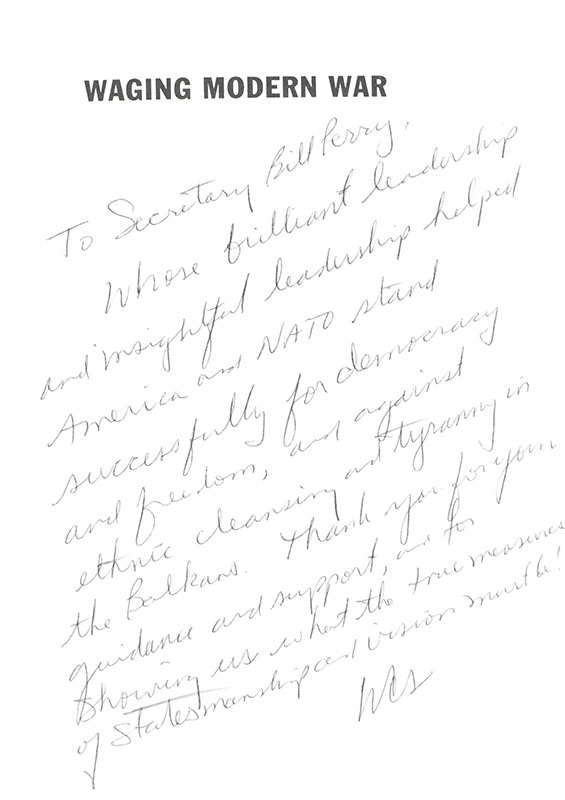 WAGING MODERN WAR
To Secretary Bill Perry,
Whose brilliant leadership
and insightful leadership helped
America and NATO stand
successfully for democracy
and freedom, and against
ethnic cleansing and tyranny in
the Balkans. Thank you for your
guidance and support, and for
showing us what the true measures
of statesmanship and vision must be!
WCS